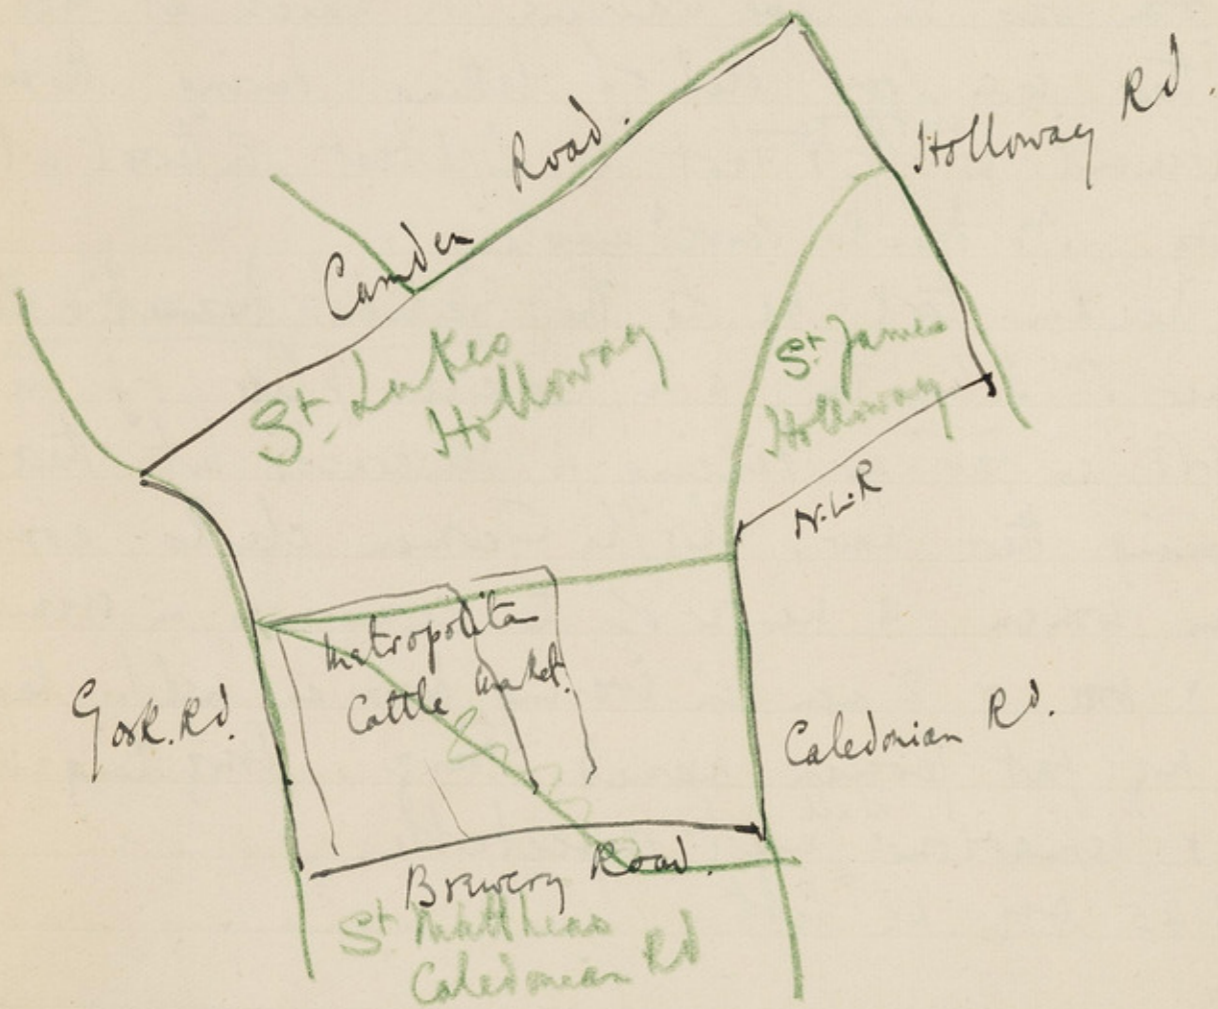 Camden Road.
Holloway Rd.
St. Lukes
Holloway
St. James
Holloway
N.L.R
Metropolitan
Cattle Market.
York. Rd.
Caledonian Rd.
Brewery Road.
St Matthias
Caledonian Rd